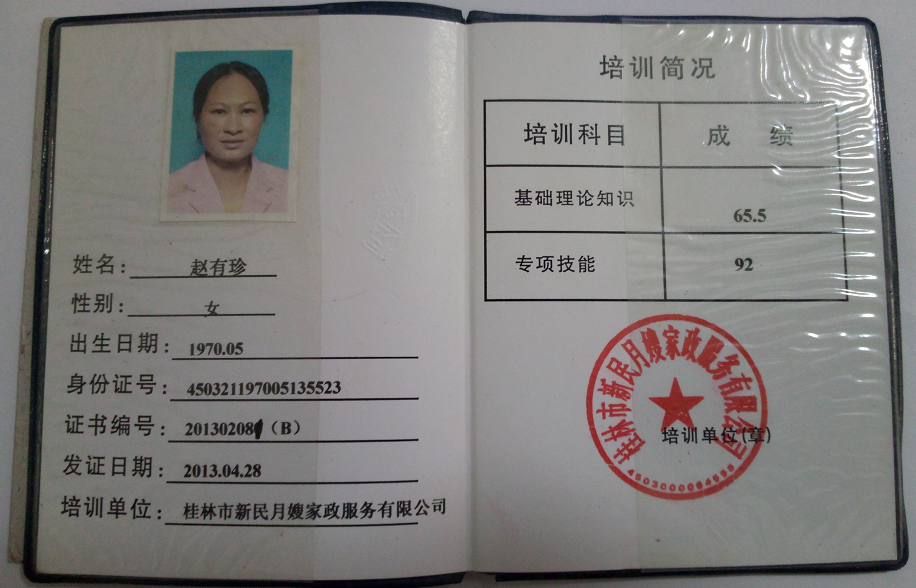 姓名: 赵有珍
性别: 女
出生日期: 1970.05
身份证号: 450321197005135523
证书编号: 20130208（B）
发证日期: 2013.04.28
培训单位: 桂林市新民月嫂家政服务有限公司
培训简况
培训科目 成 绩
基础理论知识 65.5
专项技能 92
桂林市新民月嫂家政服务有限公司
培训单位(章)